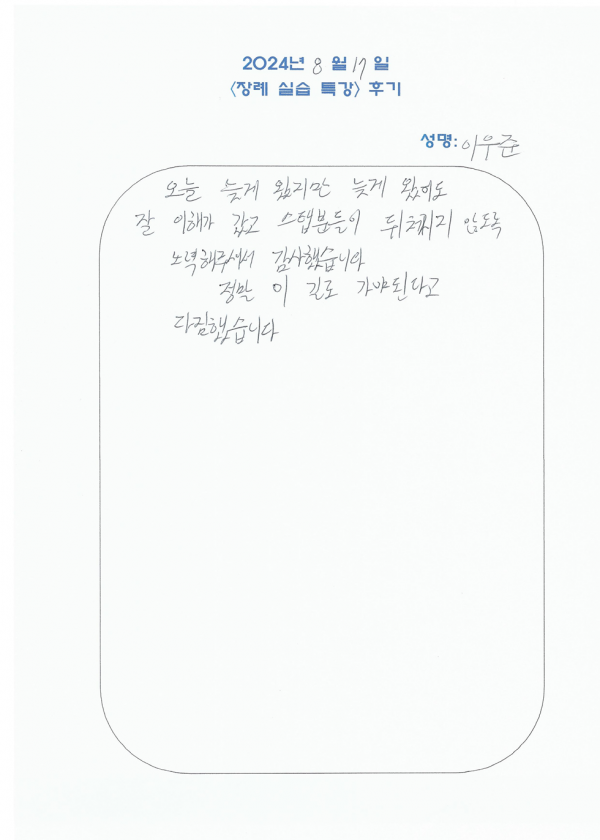 2024년 8월 17일
<장례 실습 특강> 후기
성명: 이우준
오늘 늦게 왔지만 늦게 왔어도
잘 이해가 갔고 스탭분들이 뒤처지지 않도록
노력해주셔서 감사했습니다
정말 이 길로 가야된다고
다짐했습니다